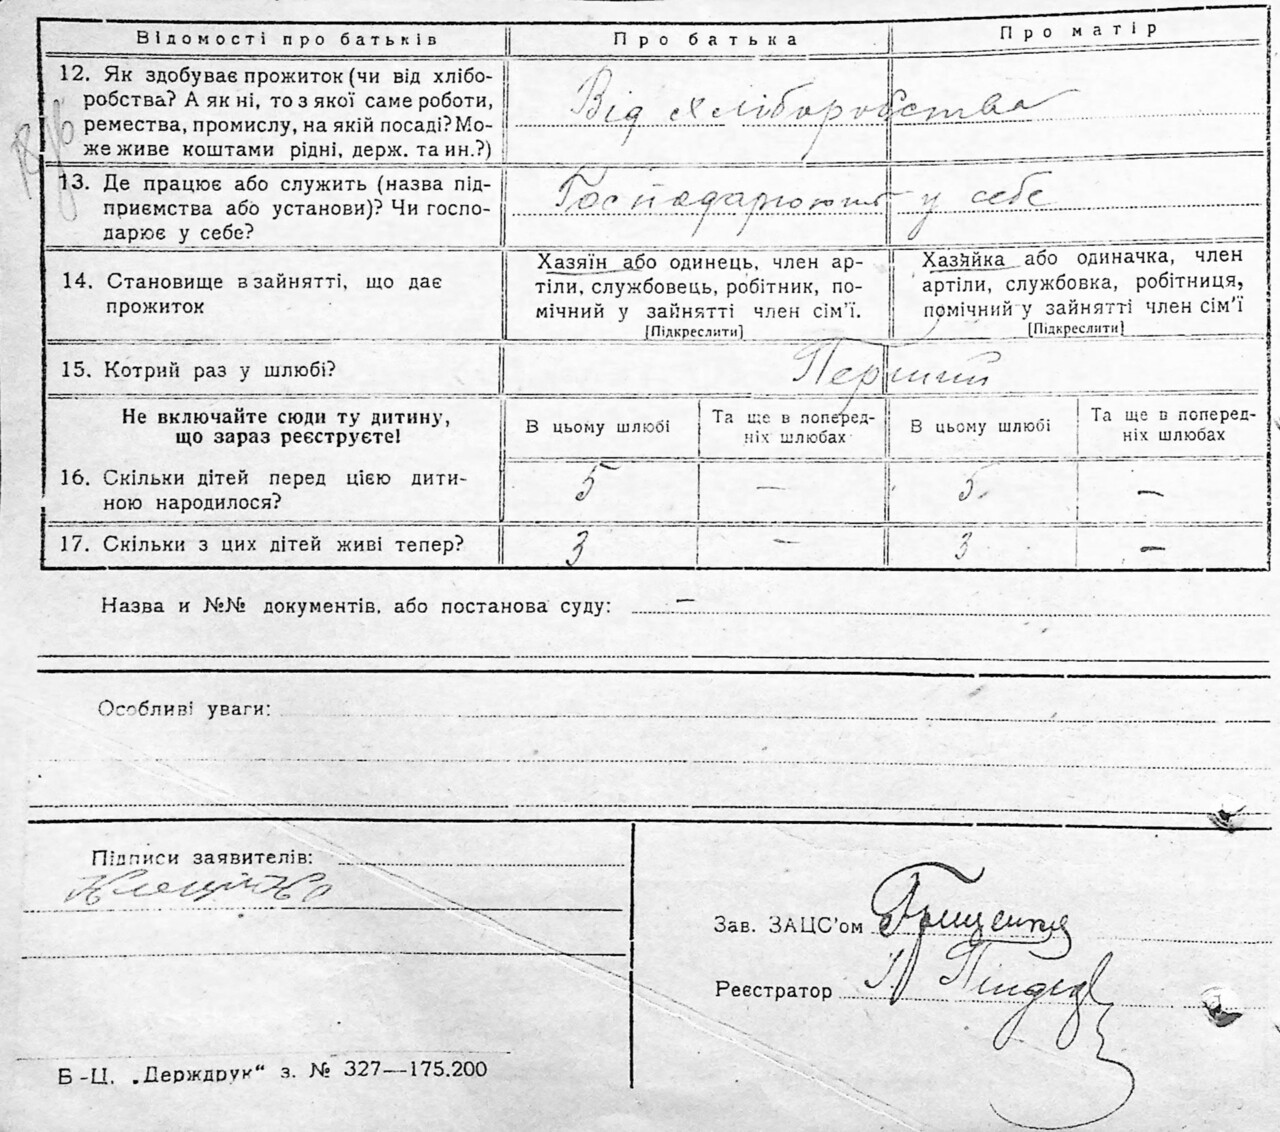 Відомості про батьків
Про батька
Про матір
12. Як здобуває прожиток (чи від хлібо-
робства? А як ні, то з якої саме роботи,
ремества, промислу, на якій посаді? Мо-
же живе коштами рідні, держ. та ин.?)
Від хліборобства
13. Де працює або служить (назва під-
приємства або установи)? Чи госпо-
дарює у себе?
Господарюють у себе
14. Становище в зайнятті, що дає
прожиток
Хазяїн або одинець, член ар-
тіли, службовець, робітник, по-
мічний у зайнятті член сім'ї.
[Підкреслити]
Хазяйка або одиначка, член
артіли, службовка, робітниця,
помічний у зайнятті член сім'ї
[Підкреслити]
15. Котрий раз у шлюбі?
Перший
Не включайте сюди ту дитину,
що зараз реєструєте!
В цьому шлюбі
Та ще в поперед-
ніх шлюбах
В цьому шлюбі
Та ще в поперед-
ніх шлюбах
16. Скільки дітей перед цією дити-
ною народилося?
5 — 5 —
17. Скільки з цих дітей живі тепер?
3 — 3 —
Назва и №№ документів, або постанова суду: —
Особливі уваги:
Підписи заявителів:
Зав. ЗАЦС'ом Грищенко
Реєстратор
Б-Ц. „Держдрук" з. № 327—175.200